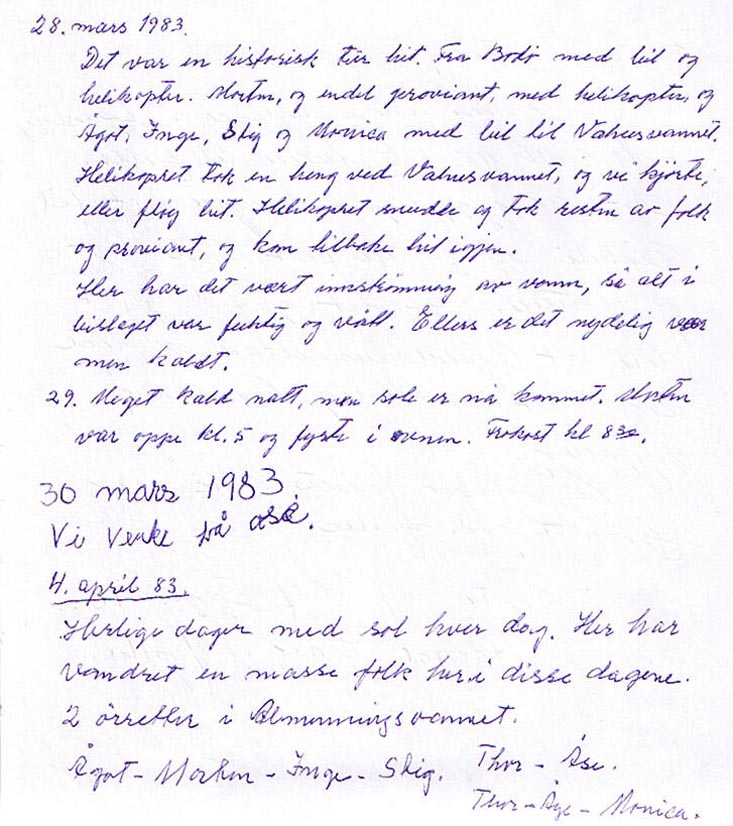 28. mars 1983.
Det var en historisk tur hit. Fra Bodø med bil og
helikopter. Morten, og endel proviant, med helikopter, og
Ågot, Inge, Stig og Monica med bil til Valnesvannet.
Helikopret tok en heng ved Valnesvannet, og vi kjørte,
eller fløy hit. Helikopret snudde og tok resten av folk
og proviant, og kom tilbake hit igjen.
Her har det vært innstrømning av vann, så alt i
bislaget var fuktig og vått. Ellers er det nydelig vær
men kaldt.
29. Meget kald natt, men sola er nå kommet. Morten
var oppe kl. 5 og fyrte i ovnen. Frokost kl 8 30.
30 mars 1983.
Vi på åse.
4. april 83.
Herlige dager med sol hver dag. Her har
vandret en masse folk her i disse dagene.
2 örretter i Almenningsvannet.
Ågot - Morten - Inge - Stig. Thor - Åse.
Thor-Åge - Monica.